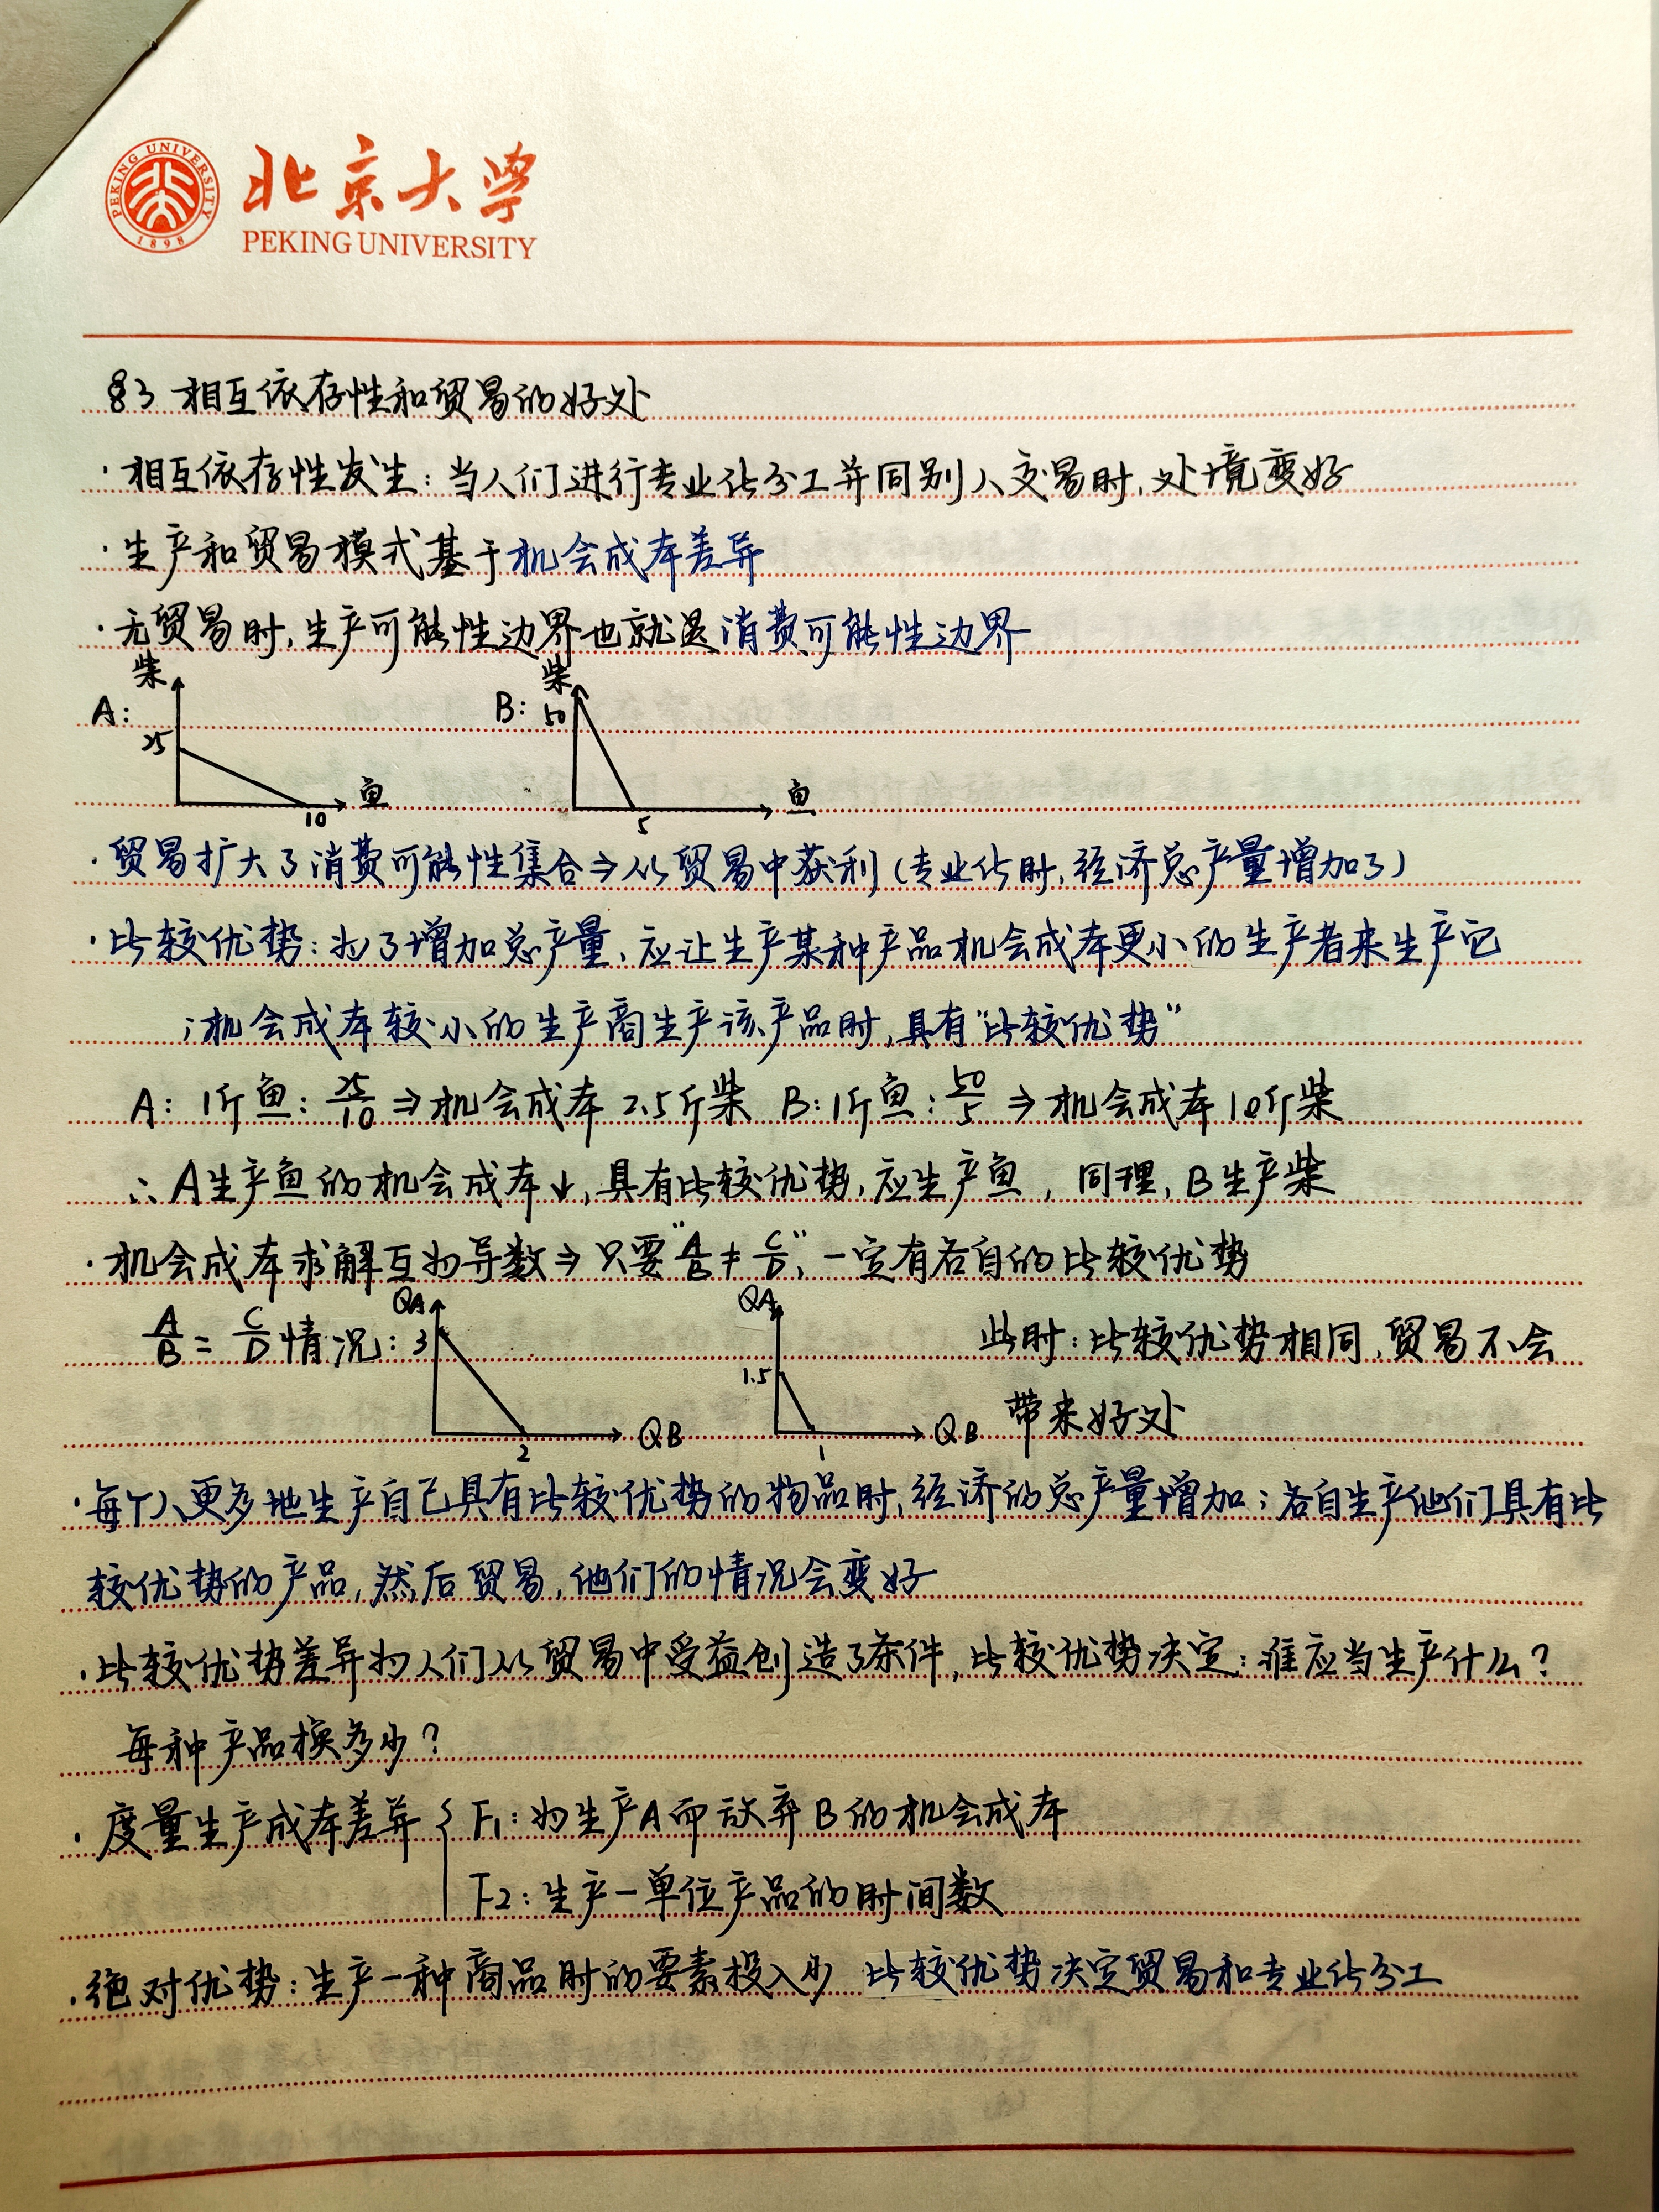 PEKING UNIVERSITY
1898
北京大学
PEKING UNIVERSITY
§3 相互依存性和贸易的好处
·相互依存性发生:当人们进行专业化分工并同别人交易时,处境变好
·生产和贸易模式基于机会成本差异
·无贸易时,生产可能性边界也就是消费可能性边界
A: 柴 25 10 鱼
B: 柴 50 5 鱼
·贸易扩大了消费可能性集合⇒从贸易中获利(专业化时,经济总产量增加了)
·比较优势:为了增加总产量,应让生产某种产品机会成本更小的生产者来生产它
;机会成本较小的生产商生产该产品时,具有“比较优势”
A: 1斤鱼: 25/10 ⇒机会成本 2.5斤柴 B: 1斤鱼: 50/5 ⇒机会成本10斤柴
∴A生产鱼的机会成本↓,具有比较优势,应生产鱼, 同理,B生产柴
·机会成本求解互为导数⇒只要“A/B≠C/D”,一定有各自的比较优势
A/B = C/D 情况: QA 3 2 QB QA 1.5 1 QB 此时:比较优势相同,贸易不会
带来好处
·每个人更多地生产自己具有比较优势的物品时,经济的总产量增加;各自生产他们具有比
较优势的产品,然后贸易,他们的情况会变好
·比较优势差异为人们从贸易中受益创造了条件,比较优势决定:谁应当生产什么?
每种产品换多少?
·度量生产成本差异{F1:为生产A而放弃B的机会成本
F2:生产一单位产品的时间数
·绝对优势:生产一种商品时的要素投入少 比较优势决定贸易和专业化分工